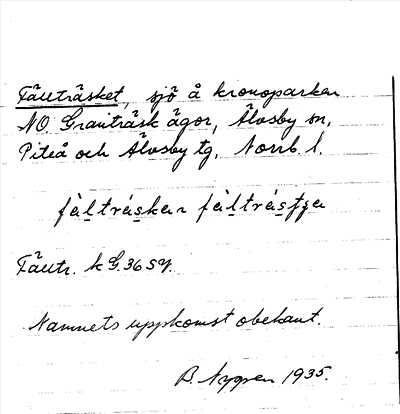 Fällträsket, sjö å kronoparken
NO. Granträsk ägor, Älvsby sn,
Piteå och Älvsby tg, Norrb. l.
fàltráskan fàltrástsa
Fälltr. k G. 36 SV.
Namnets uppkomst obekant.
B. Nygren 1935.